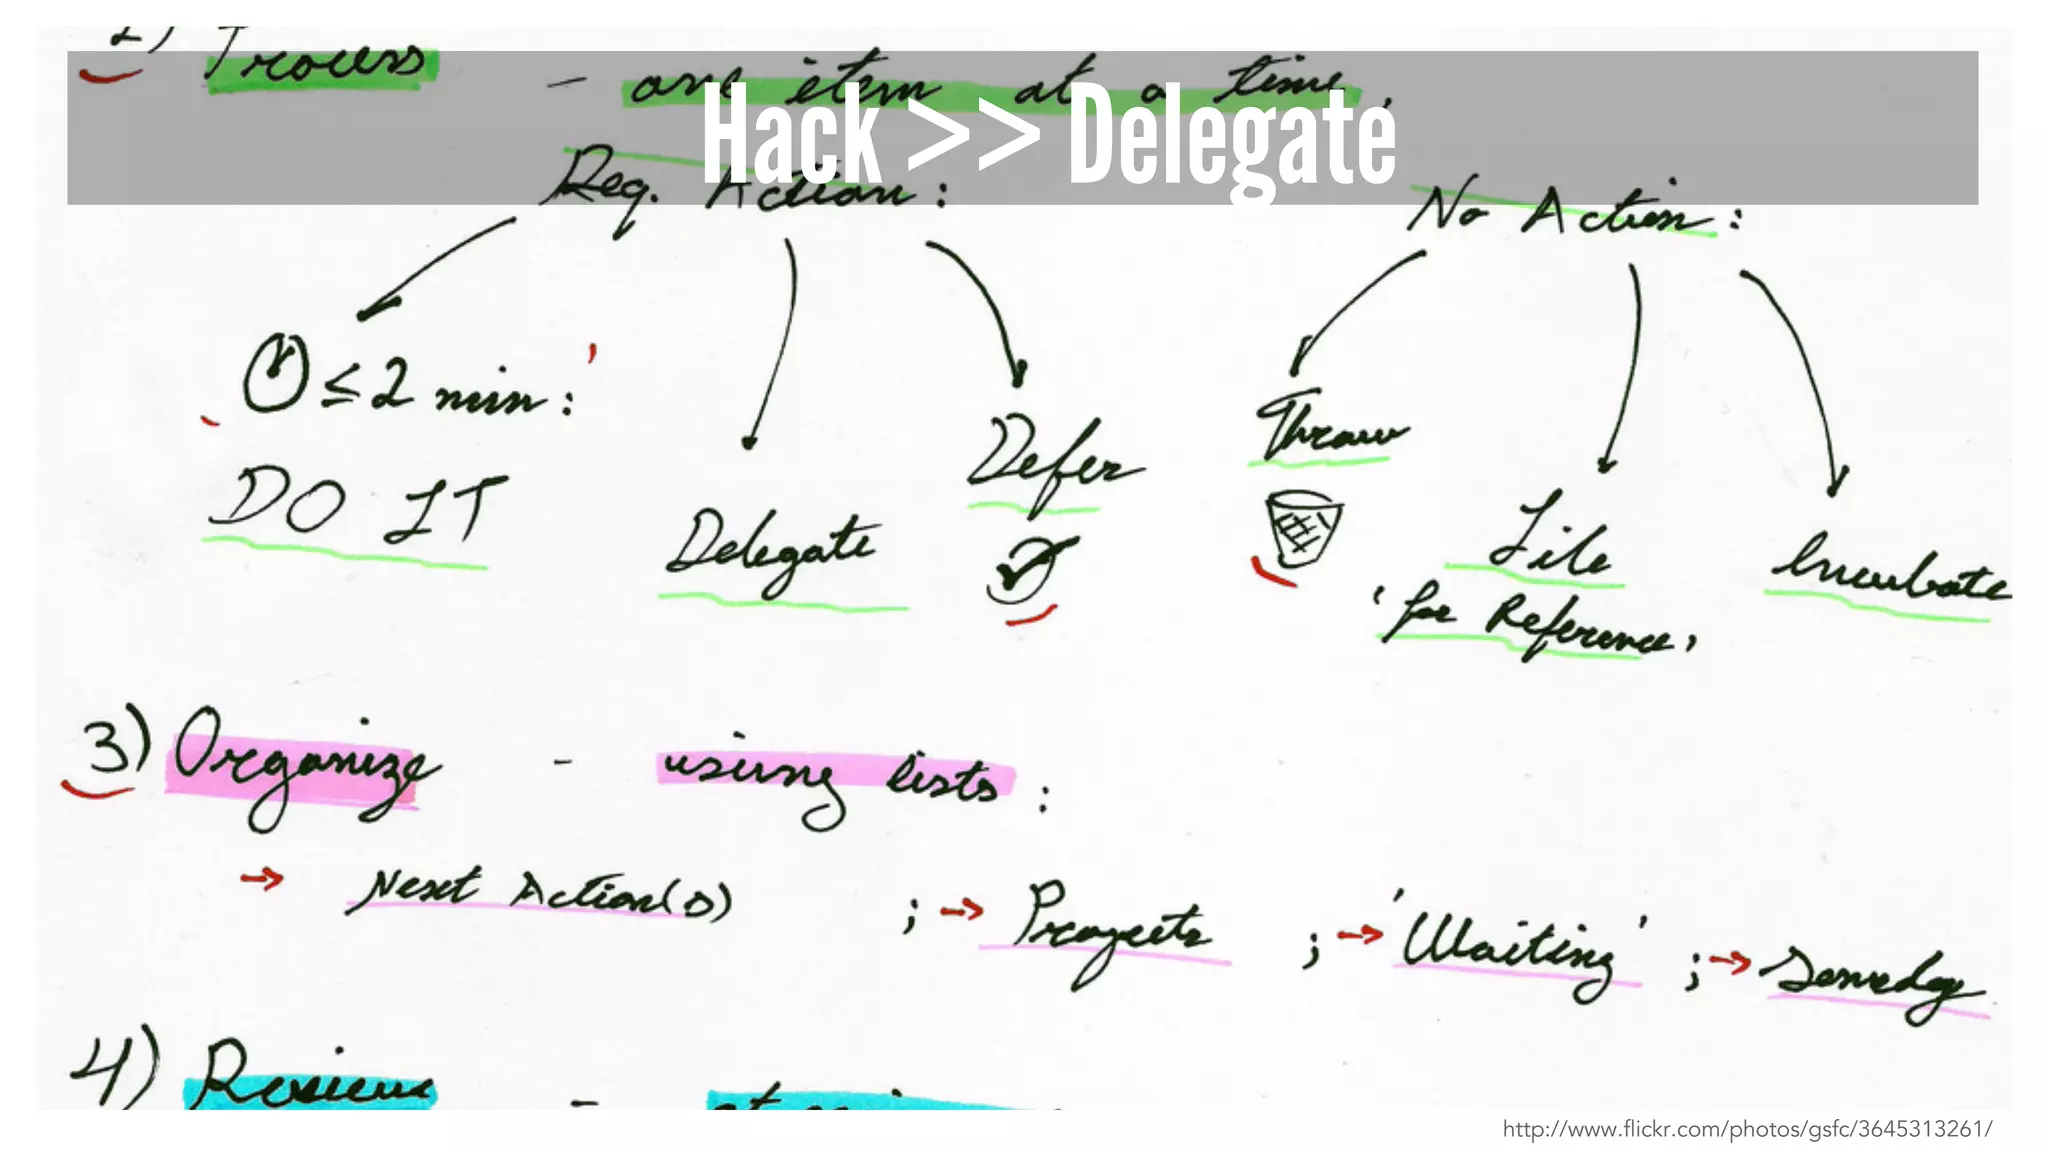 2) Process - one item at a time,
Hack >> Delegate
Req. Action:
No Action:
≤ 2 min:
DO IT
Delegate
Defer
Throw
File
'for Reference,
Incubate
3) Organize - using lists:
→ Next Action(s) ; → Projects ; → 'Waiting' ; → Someday
4) Review -
http://www.flickr.com/photos/gsfc/3645313261/